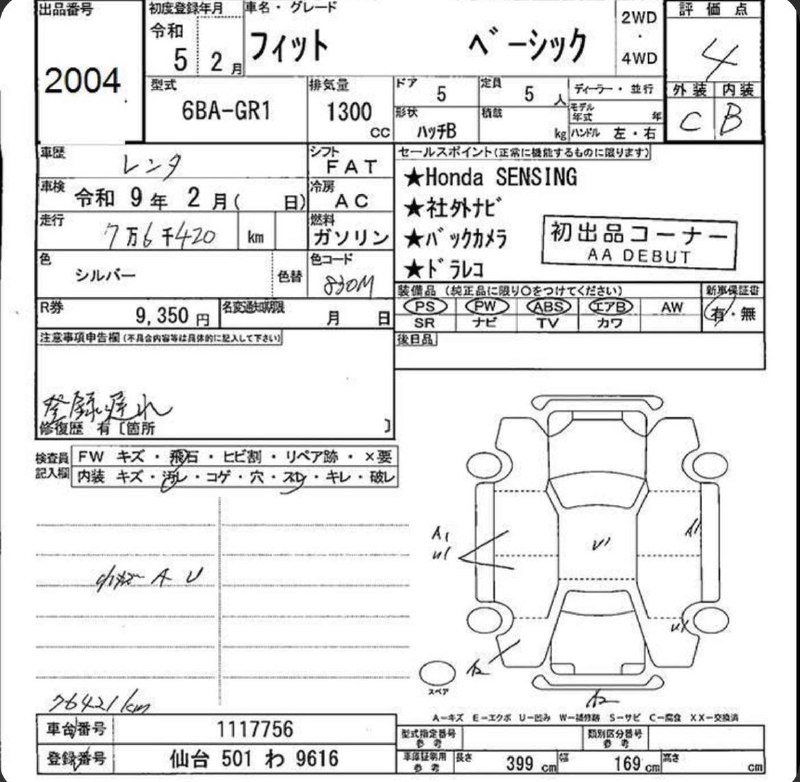 出品番号 2004
初度登録年月 令和 5 2月
車名・グレード フィット ベーシック
2WD・4WD
評価点 4
外装 C 内装 B
型式 6BA-GR1
排気量 1300 CC
ドア 5
定員 5人
ディーラー・並行
形状 ハッチB
積載 kg
モデル年式 年
ハンドル 左・右
車歴 レンタ
シフト FAT
車検 令和 9年 2月( 日)
冷房 AC
走行 7万6千420 km
燃料 ガソリン
色 シルバー
色替
色コード 830M
R券 9,350円
名変通知期限 月 日
セールスポイント(正常に機能するものに限ります)
★Honda SENSING
★社外ナビ
★バックカメラ
★ドラレコ
初出品コーナー
AA DEBUT
装備品(純正品に限り○をつけてください)
新車保証書
PS PW ABS エアB AW 有・無
SR ナビ TV カワ
後日品
注意事項申告欄(不具合内容等は具体的に記入して下さい)
登録遅れ
修復歴 有〔箇所 〕
検査員記入欄
FW キズ・飛石・ヒビ割・リペア跡・×要
内装 キズ・汚レ・コゲ・穴・スレ・キレ・破レ
A U
76421km
A1
U1
U1
A1
U1
スペア
A-キズ E-エクボ U-凹み W-補修跡 S-サビ C-腐食 XX-交換済
車台番号 1117756
登録番号 仙台 501 わ 9616
型式指定番号 参考
類別区分番号 参考
車庫証明用 参考
長さ 399 cm
幅 169 cm
高さ cm